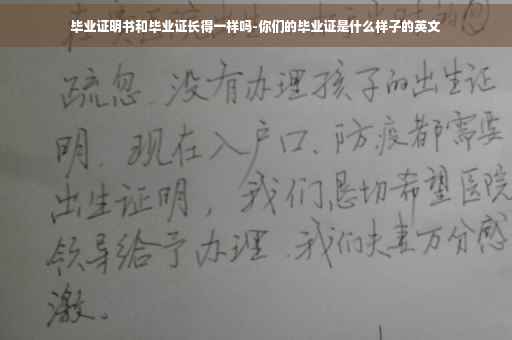 毕业证明书和毕业证长得一样吗-你们的毕业证是什么样子的英文
疏忽、没有办理孩子的出生证
明、现在入户口、防疫都需要
出生证明，我们恳切希望医院
领导给予办理、我们夫妻万分感
激。